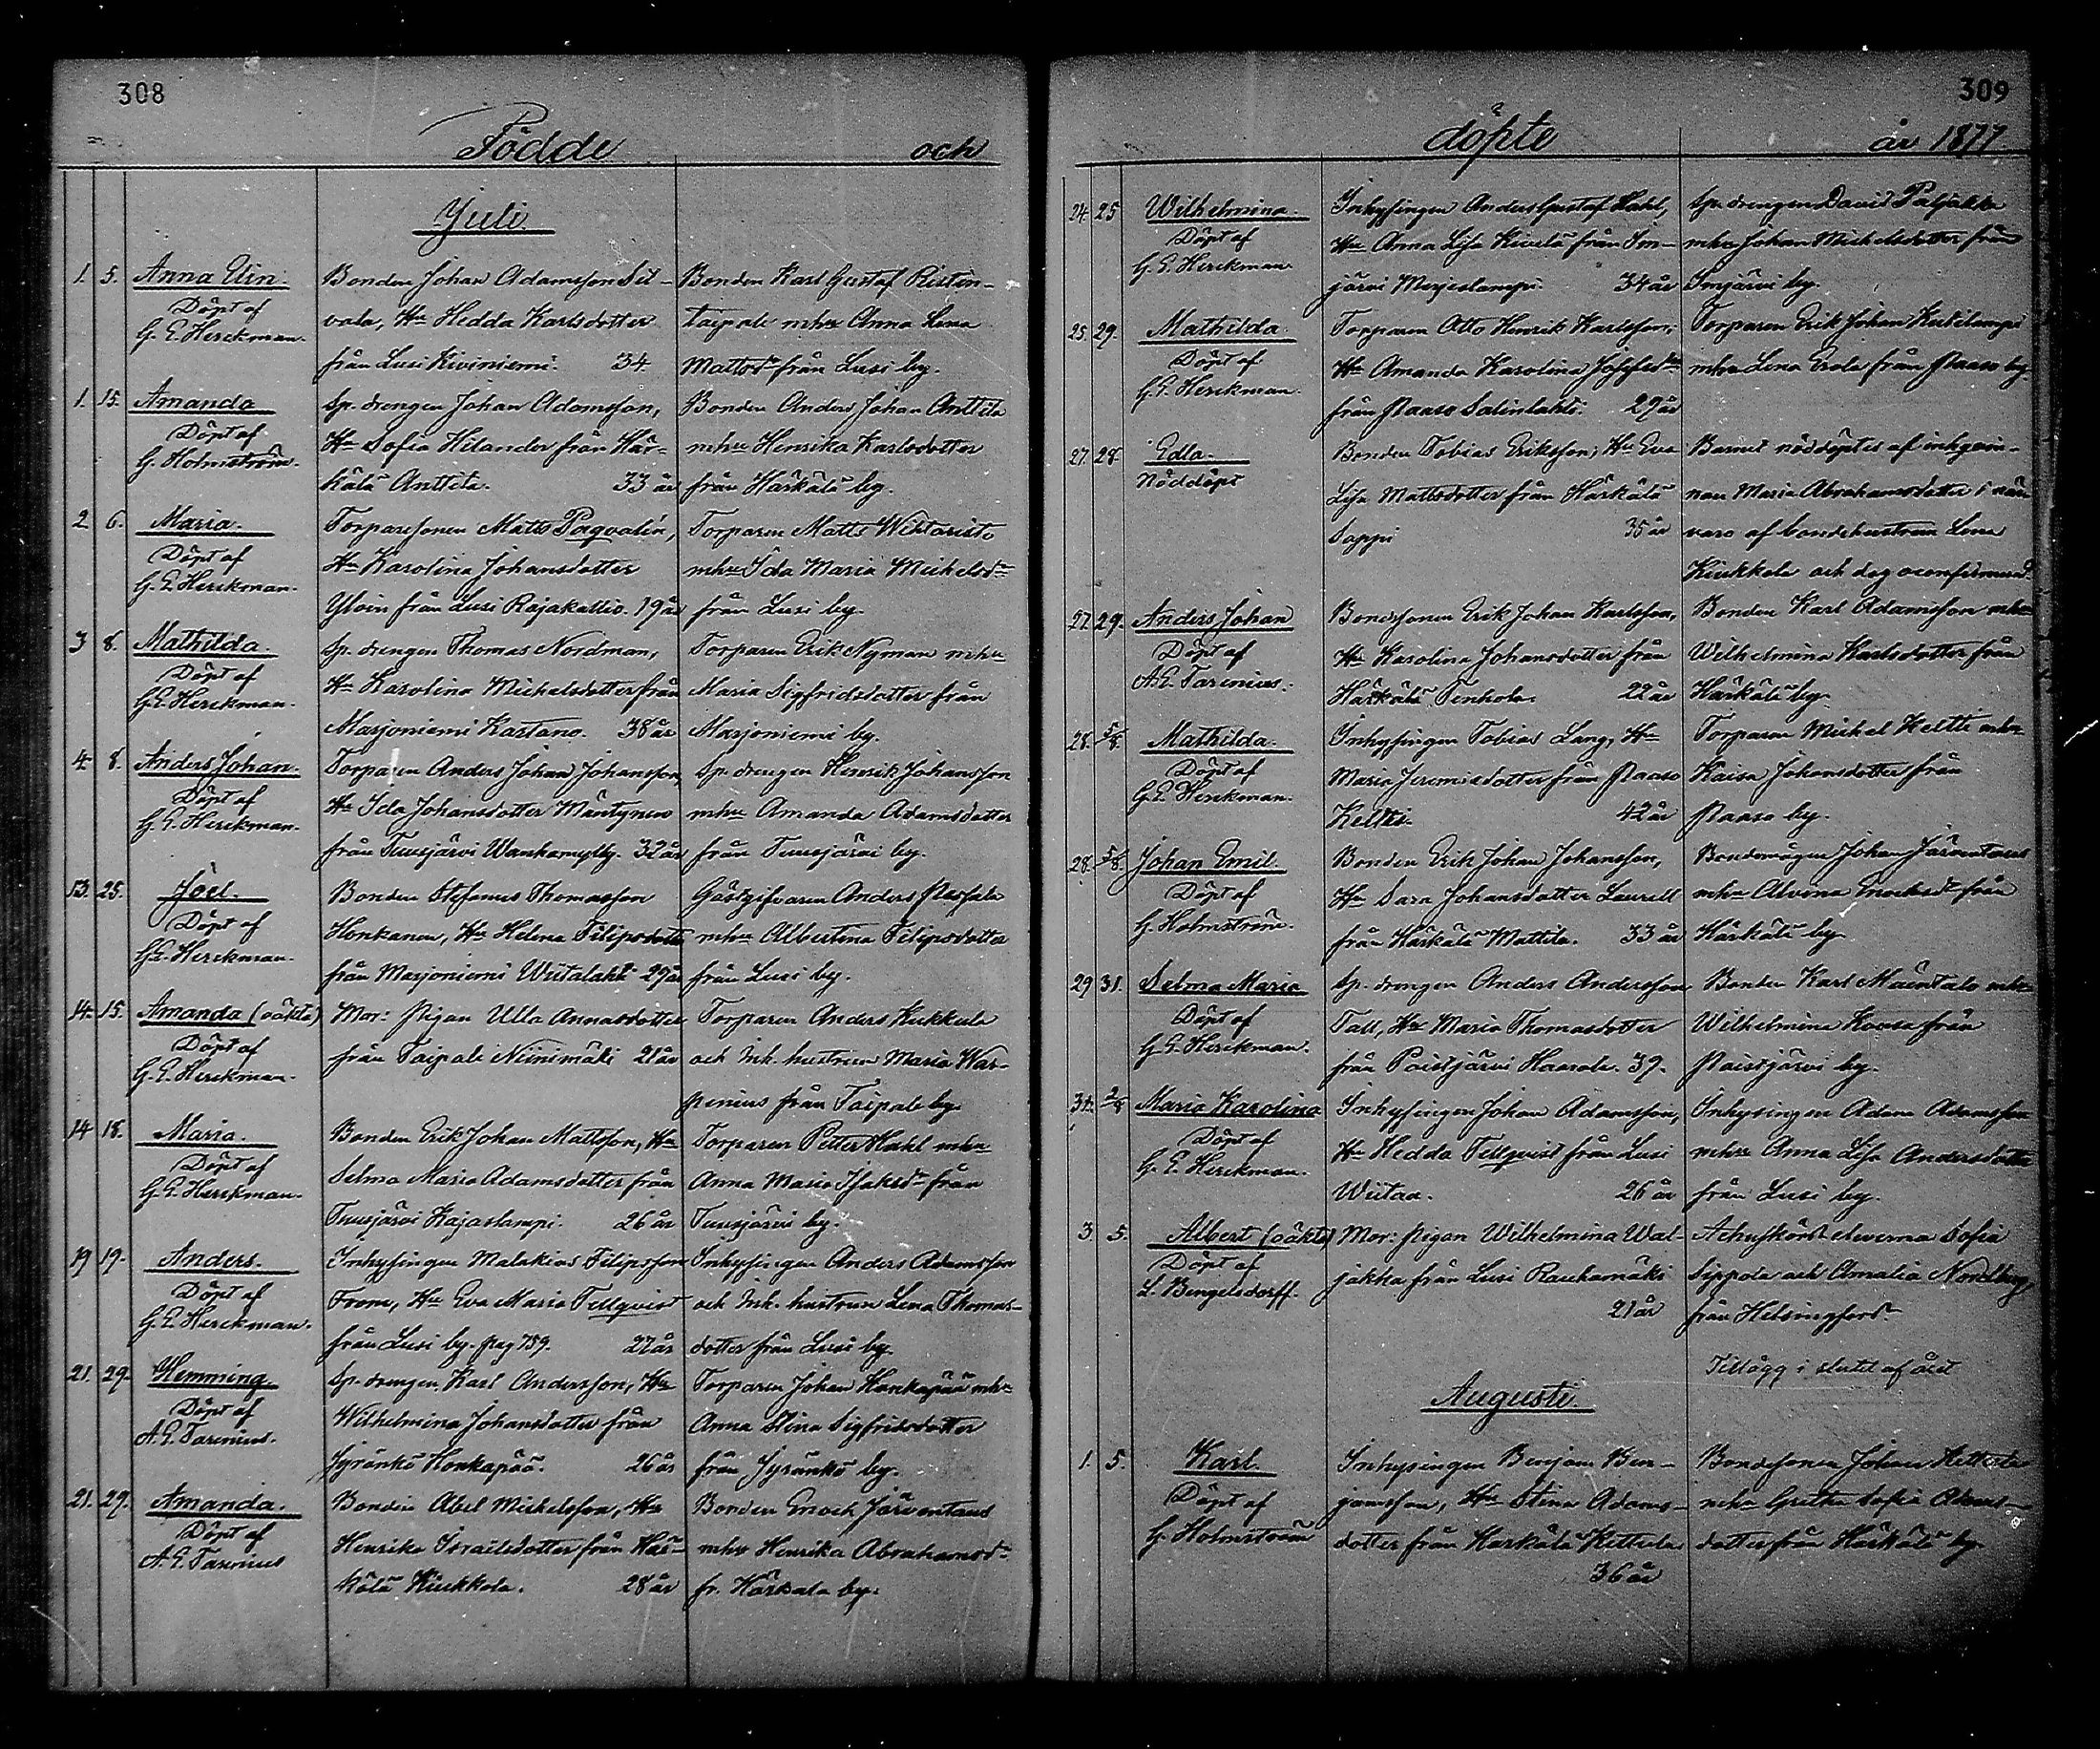 308
Födde och
Juli.
1. 5. Anna Elin.
Döpt af
G. E. Herckman.
Bonden Johan Adamsson Sil-
vola, Hu Hedda Karlsdotter
från Lusi Kiviniemi. 34
Bonden Karl Gustaf Ristin-
taipale mhu Anna Lena
Mattsdr från Lusi by.
1. 15. Amanda
Döpt af
G. Holmström.
Sp. drengen Johan Adamsson,
Hu Sofia Hilander från Här-
kälä Anttila. 33 år
Bonden Anders Johan Anttila
mhu Henrika Karlsdotter
från Härkälä by.
2 6. Maria.
Döpt af
G. E. Herckman.
Torparesonen Matts Paqvalin,
Hu Karolina Johansdotter
Yloin från Lusi Rajakallio. 19 år
Torparen Matts Wiktoristo
mhu Ida Maria Michelsdr
från Lusi by.
3 8. Mathilda.
Döpt af
G. E. Herckman.
Sp. drengen Thomas Nordman,
Hu Karolina Michelsdotter från
Marjoniemi Kartano. 38 år
Torparen Erik Nyman mhu
Maria Sigfridsdotter från
Marjoniemi by.
4 8. Anders Johan.
Döpt af
G. E. Herckman.
Torparen Anders Johan Johansson,
Hu Ida Johansdotter Mäntynen
från Tuusjärvi Wanhamylly. 32 år
Sp. drengen Henrik Johansson
mhu Amanda Adamsdotter
från Tuusjärvi by.
13. 25. Joel.
Döpt af
G. E. Herckman.
Bonden Stefanus Thomasson
Honkanen, Hu Helena Filipsdotter
från Marjoniemi Wiitalahti 29 år
Gästgifvaren Anders Passala
mhu Albertina Filipsdotter
från Lusi by.
14. 15. Amanda (oäkta)
Döpt af
G. E. Herckman.
Mor: Pigan Ulla Annasdotter
från Taipale Niinimäki 21 år
Torparen Anders Kukkula
och Inh. hustrun Maria War-
penius från Taipale by.
14 18. Maria.
Döpt af
G. E. Herckman.
Bonden Erik Johan Mattsson, Hu
Selma Maria Adamsdotter från
Tuusjärvi Kajaslampi. 26 år
Torparen Petter Hahl mhu
Anna Maria Isaksdr från
Tuusjärvi by.
19 19. Anders.
Döpt af
G. E. Herckman.
Inhysingen Malakias Filipsson
From, Hu Eva Maria Tellqvist
från Lusi by. pag 759. 22 år
Inhysingen Anders Adamsson
och Inh. hustrun Lena Thomas-
dotter från Lusi by.
21. 29. Hemming
Döpt af
A. E. Tarenius.
Sp. drengen Karl Andersson, Hu
Wilhelmina Johansdotter från
Jyränkö Honkapää. 26 år
Torparen Johan Honkapää mhu
Anna Stina Sigfridsdotter
från Jyränkö by.
21. 29. Amanda.
Döpt af
A. E. Tarenius
Bonden Abel Mickelsson, Hu
Henrika Israelsdotter från Här-
kälä Kirkkola. 28 år
Bonden Enoch Järventaus
mhu Henrika Abrahamsdr
fr. Härkälä by.
309
döpte år 1877
24 25 Wilhelmina.
Döpt af
G. E. Herckman
Inhysingen Anders Gustaf Hahl,
Hu Anna Lisa Kivelä från Im-
järvi Merjaslampi. 34 år
Sp. drengen David Paljakka
mhu Johan Michelsdotter från
Imjärvi by.
25. 29. Mathilda
Döpt af
G. E. Herckman.
Torparen Otto Henrik Karlsson,
Hu Amanda Karolina Josefsdr
från Paaso Salinlahti. 29 år
Torparen Erik Johan Kutilampi
mhu Lena Erola från Paaso by.
27. 28. Edla.
Nöddöpt
Bonden Tobias Eriksson, Hu Eva
Lisa Mattsdotter från Härkälä
Soppi 35 år
Barnet nöddöptes af inhqvin-
nan Maria Abrahamsdotter i när-
varo af bondehustrun Lena
Kirkkola och dog oconfirmerad
27. 29. Anders Johan
Döpt af
A. E. Tarenius.
Bondsonen Erik Johan Karlsson,
Hu Karolina Johansdotter från
Härkälä Tenhola. 22 år
Bonden Karl Adamsson mhu
Wilhelmina Karlsdotter från
Härkälä by.
28. 5/8. Mathilda.
Döpt af
G. E. Herckman.
Inhysingen Tobias Lang, Hu
Maria Jeremiadotter från Paaso
Keltti. 42 år
Torparen Michel Keltti mhu
Kaisa Johansdotter från
Paaso by.
28. 5/8. Johan Emil.
Döpt af
G. Holmström.
Bonden Erik Johan Johansson,
Hu Sara Johansdotter Laurell
från Härkälä Mattila. 33 år
Bondemågen Johan Järventaus
mhu Alvina Enoksdr från
Härkälä by
29 31. Selma Maria
Döpt af
G. E. Herckman.
Sp. drengen Anders Andersson
Tall, Hu Maria Thomasdotter
från Paistjärvi Haarala. 39.
Bonden Karl Mäentalo mhu
Wilhelmina Koosa från
Paistjärvi by.
31. 2/8 Maria Karolina
Döpt af
G. E. Herckman.
Inhysingen Johan Adamsson,
Hu Hedda Tellqvist från Lusi
Wiitaa. 26 år
Inhysingen Adam Adamsson
mhu Anna Lisa Andersdotter
från Lusi by.
3. 5. Albert (oäkta)
Döpt af
L. Bengelsdorff.
Mor: Pigan Wilhelmina Wal-
jakka från Lusi Rauhamäki
21 år
eleverna Sofia
Sippola och Amalia Nordberg,
från Helsingfors.
Tillägg i slutet af året
Augusti.
1. 5. Karl.
Döpt af
G. Holmström
Inhysingen Benjam Ben-
jamsson, Hu Stina Adams-
dotter från Härkälä Kettula
36 år
Bondesonen Johan Kettula
mhu Gretha Sofia Adams-
dotter från Härkälä by.